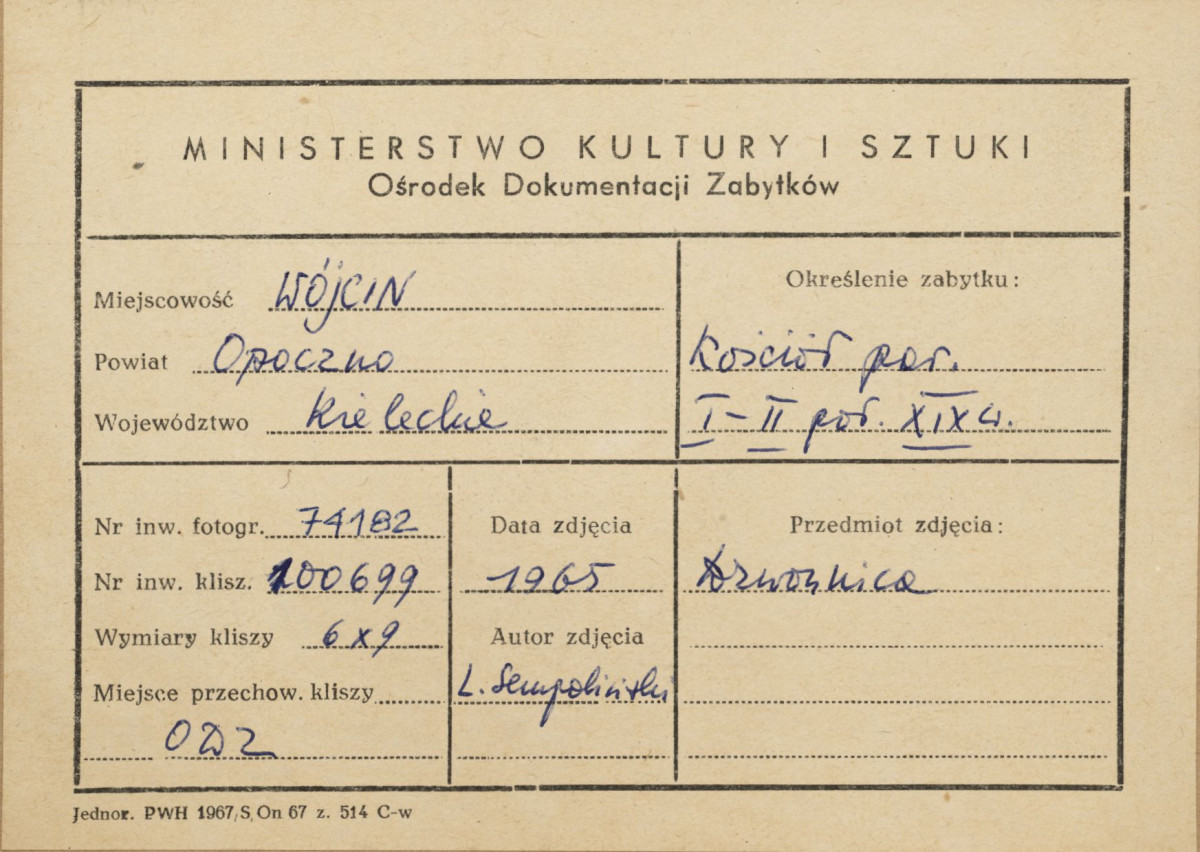 MINISTERSTWO KULTURY I SZTUKI
Ośrodek Dokumentacji Zabytków
Miejscowość WÓJCIN
Powiat Opoczno
Województwo Kieleckie
Określenie zabytku:
Kościół par.
I-II poł. XIX w.
Nr inw. fotogr. 74182
Nr inw. klisz. 100699
Wymiary kliszy 6x9
Miejsce przechow. kliszy
ODZ
Data zdjęcia
1965
Autor zdjęcia
L. Sempoliński
Przedmiot zdjęcia:
Dzwonnica
Jednor. PWH 1967/S, On 67 z. 514 C-w